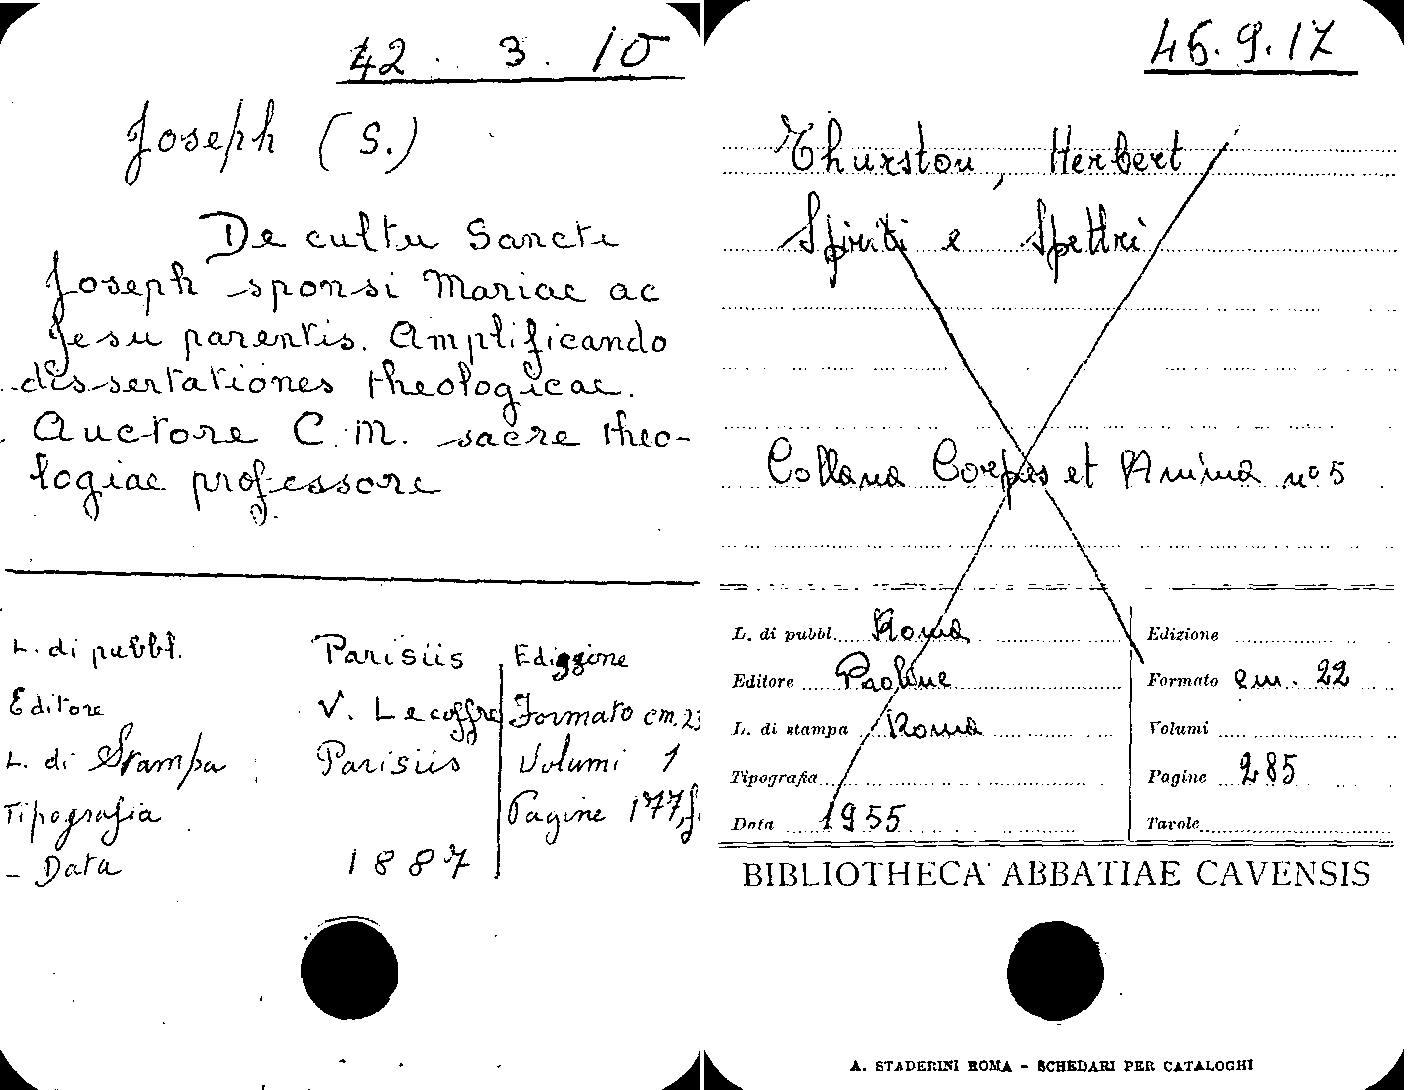 42. 3. 10
Joseph (S.)
De cultu Sancti
Joseph sponsi Mariae ac
Jesu parentis. Amplificando
dissertationes theologicae.
Auctore C. M. sacre theo-
logiae professore
L. di pubbl. Parisiis Edizione
Editore V. Lecoffre Formato cm. 23
L. di Stampa Parisiis Volumi 1
Tipografia Pagine 177,
- Data 1887
46.9.17
Thurston, Herbert
Spiriti e Spettri
Collana Corpus et Anima n° 5
L. di pubbl. Roma Edizione
Editore Paoline Formato cm. 22
L. di stampa Roma Volumi
Tipografia Pagine 285
Data 1955 Tavole
BIBLIOTHECA ABBATIAE CAVENSIS
A. STADERINI ROMA - SCHEDARI PER CATALOGHI